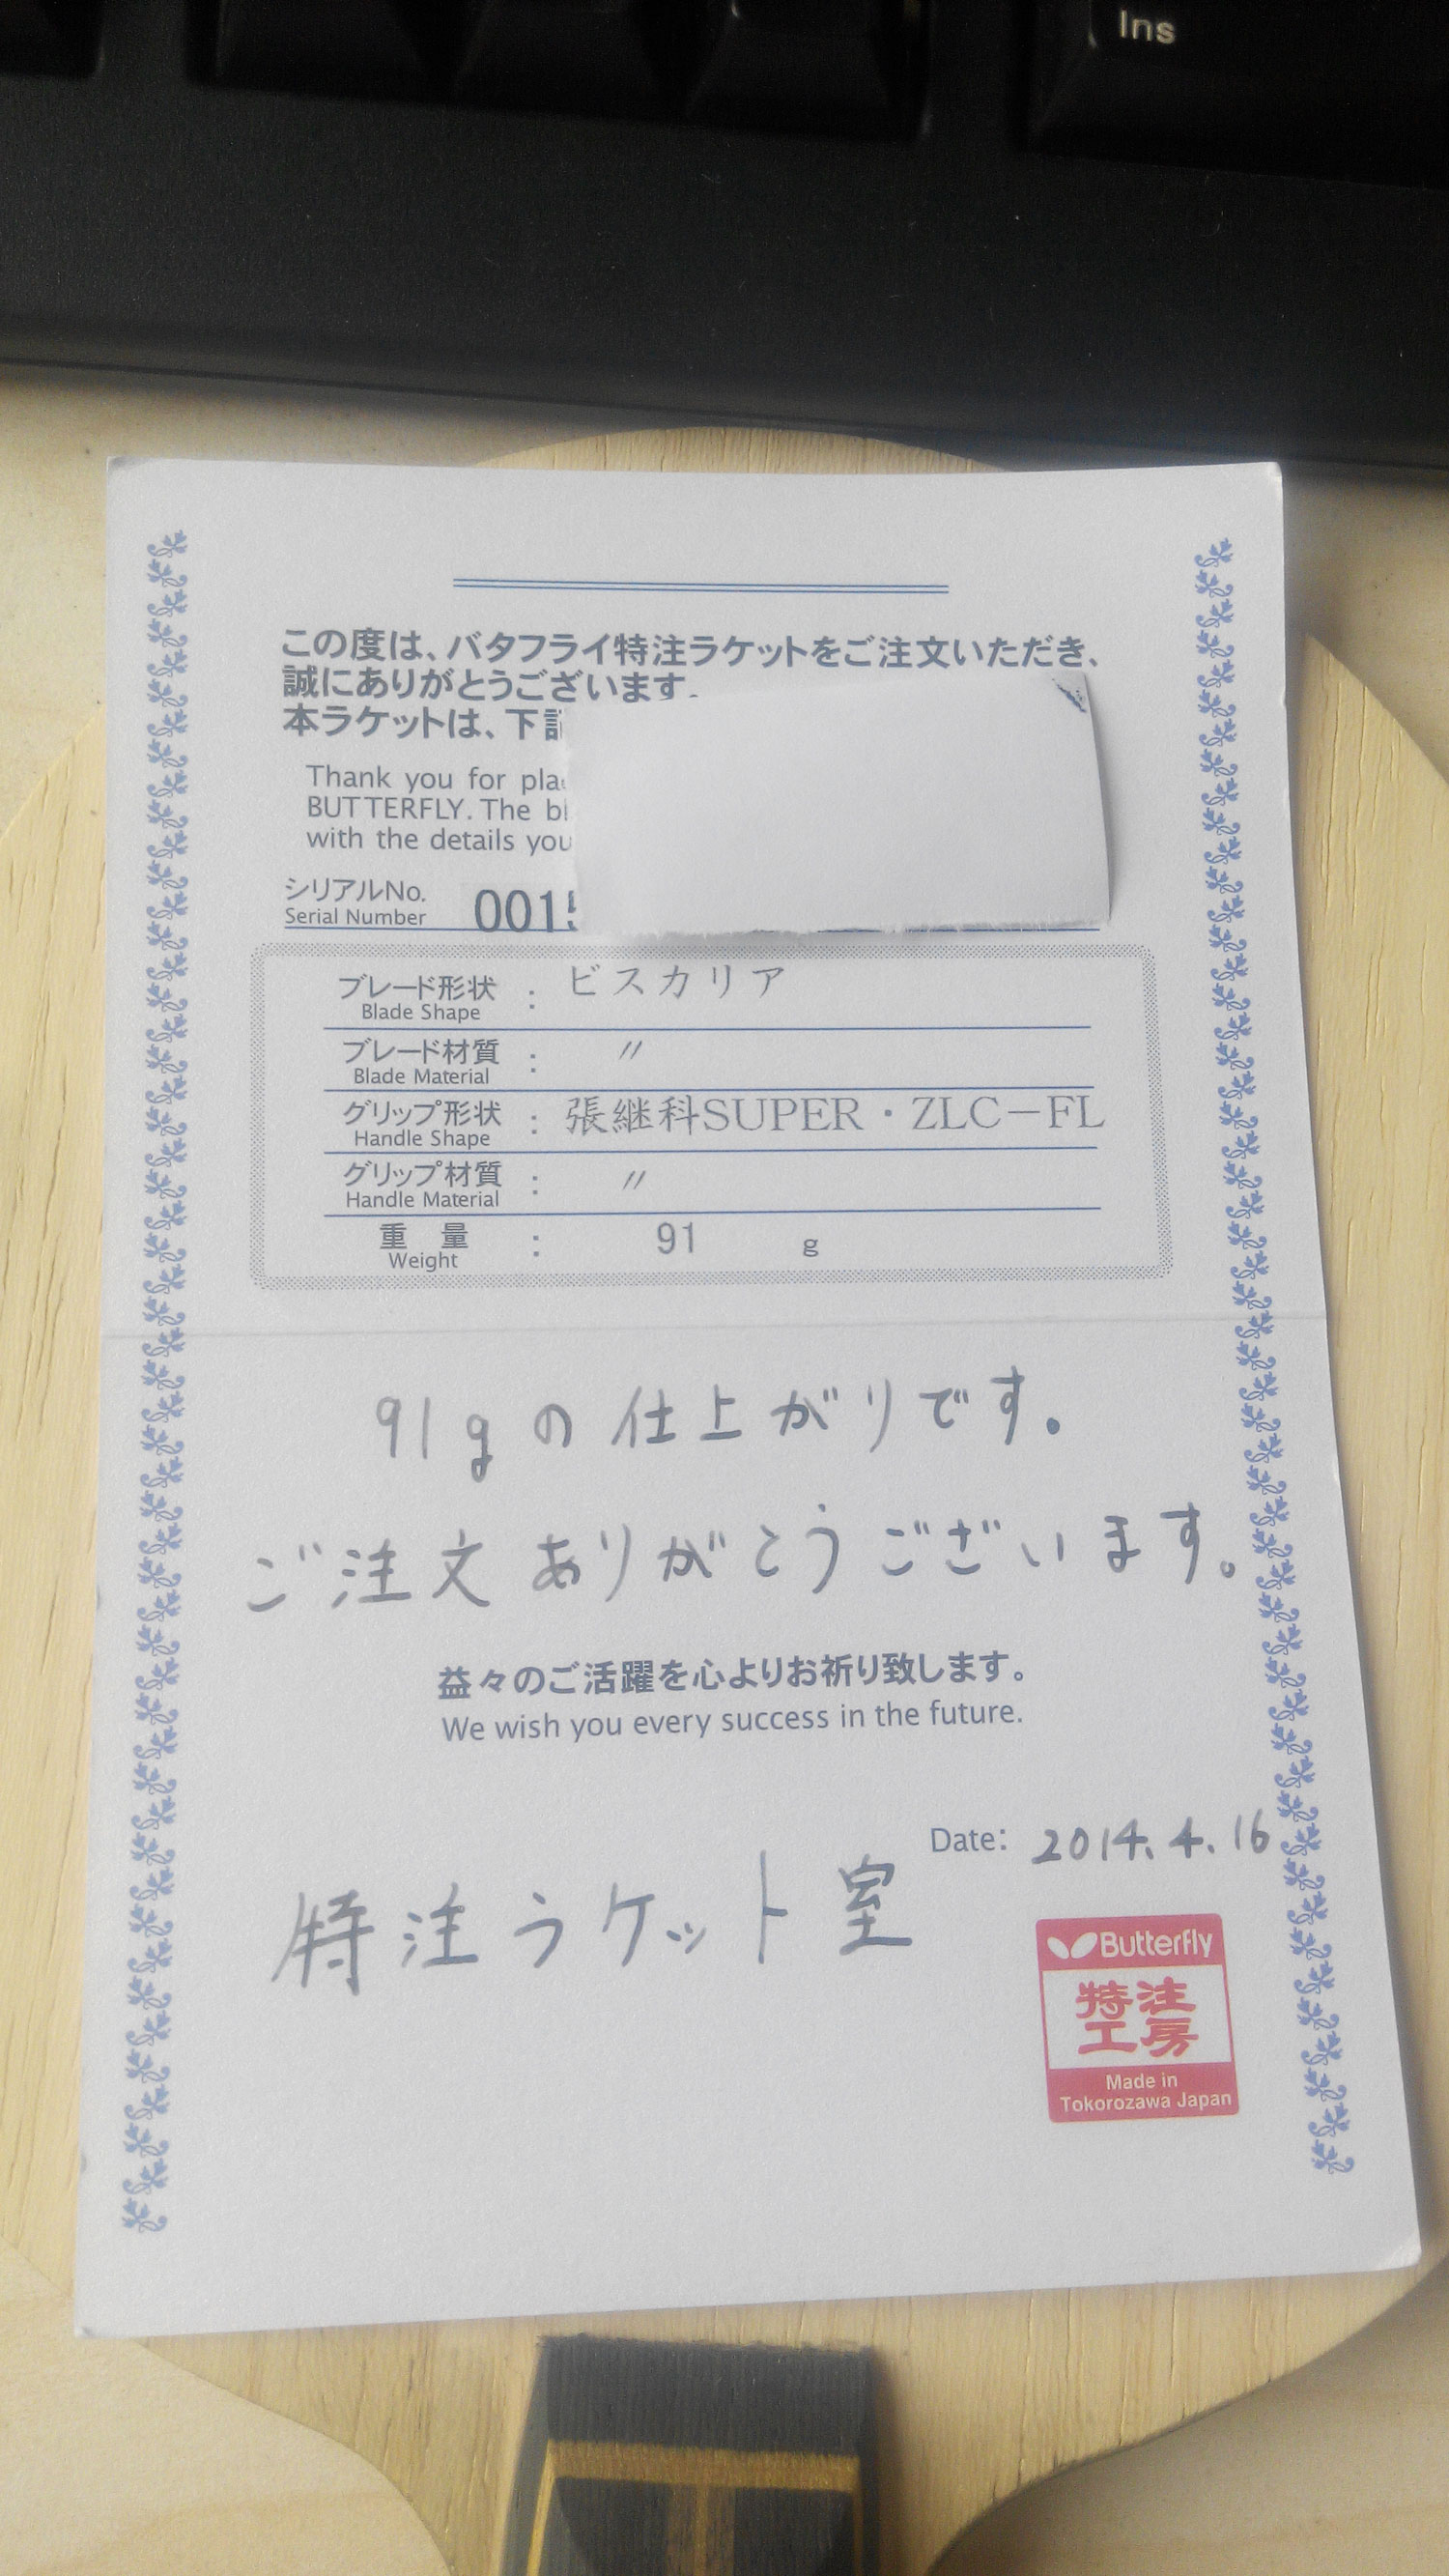 Ins
この度は、バタフライ特注ラケットをご注文いただき、
誠にありがとうございます
本ラケットは、下
Thank you for
BUTTERFLY. The
with the details you
シリアルNo.
Serial Number 001
ブレード形状 : ビスカリア
Blade Shape
ブレード材質 : 〃
Blade Material
グリップ形状 : 張継科SUPER・ZLC-FL
Handle Shape
グリップ材質 : 〃
Handle Material
重量 : 91 g
Weight
91gの仕上がりです。
ご注文ありがとうございます。
益々のご活躍を心よりお祈り致します。
We wish you every success in the future.
Date: 2014.4.16
特注ラケット室
Butterfly
特注
工房
Made in
Tokorozawa Japan